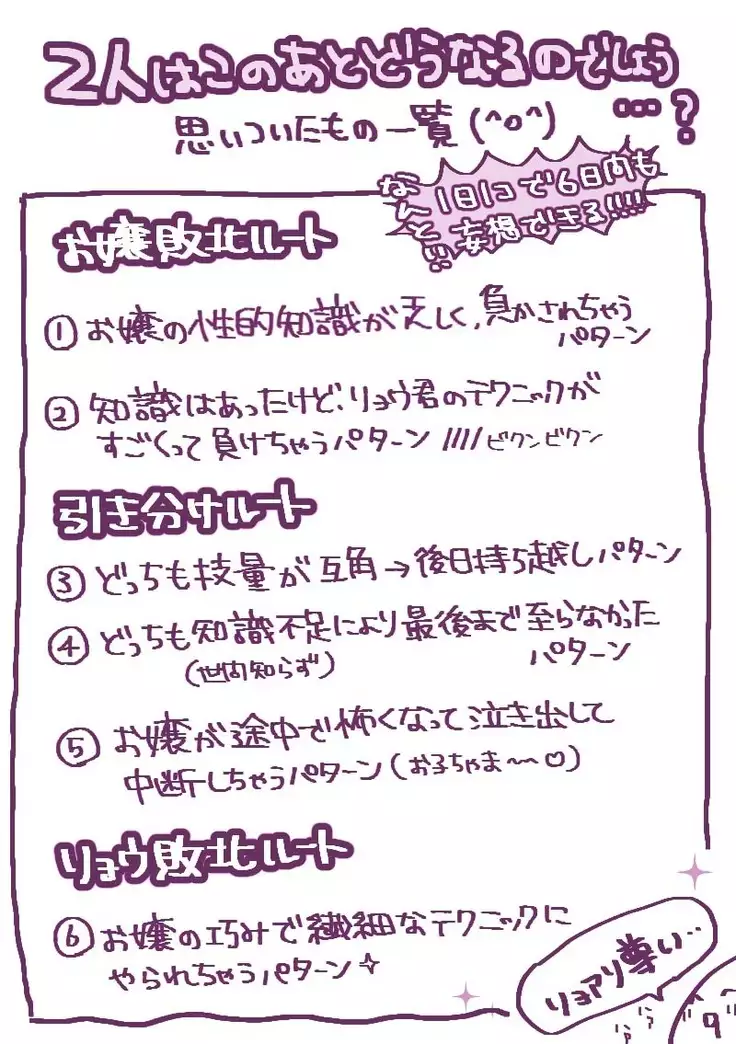 2人はこのあとどうなるのでしょう
…?
思いついたもの一覧(^o^)
なんと!!
1日1コで6日内も
妄想できる!!!!
お嬢敗北ルート
① お嬢の性的知識が乏しく、負かされちゃう
パターン
② 知識はあったけど、リョウ君のテクニックが
すごくって負けちゃうパターン ////ビクンビクン
引き分けルート
③ どっちも技量が互角→後日持ち越しパターン
④ どっちも知識不足により最後まで至らなかった
(世間知らず)
パターン
⑤ お嬢が途中で怖くなって泣き出して
中断しちゃうパターン(お子ちゃま〜〜♡)
リョウ敗北ルート
⑥ お嬢の巧みで繊細なテクニックに
やられちゃうパターン✧
リョアリ尊い…